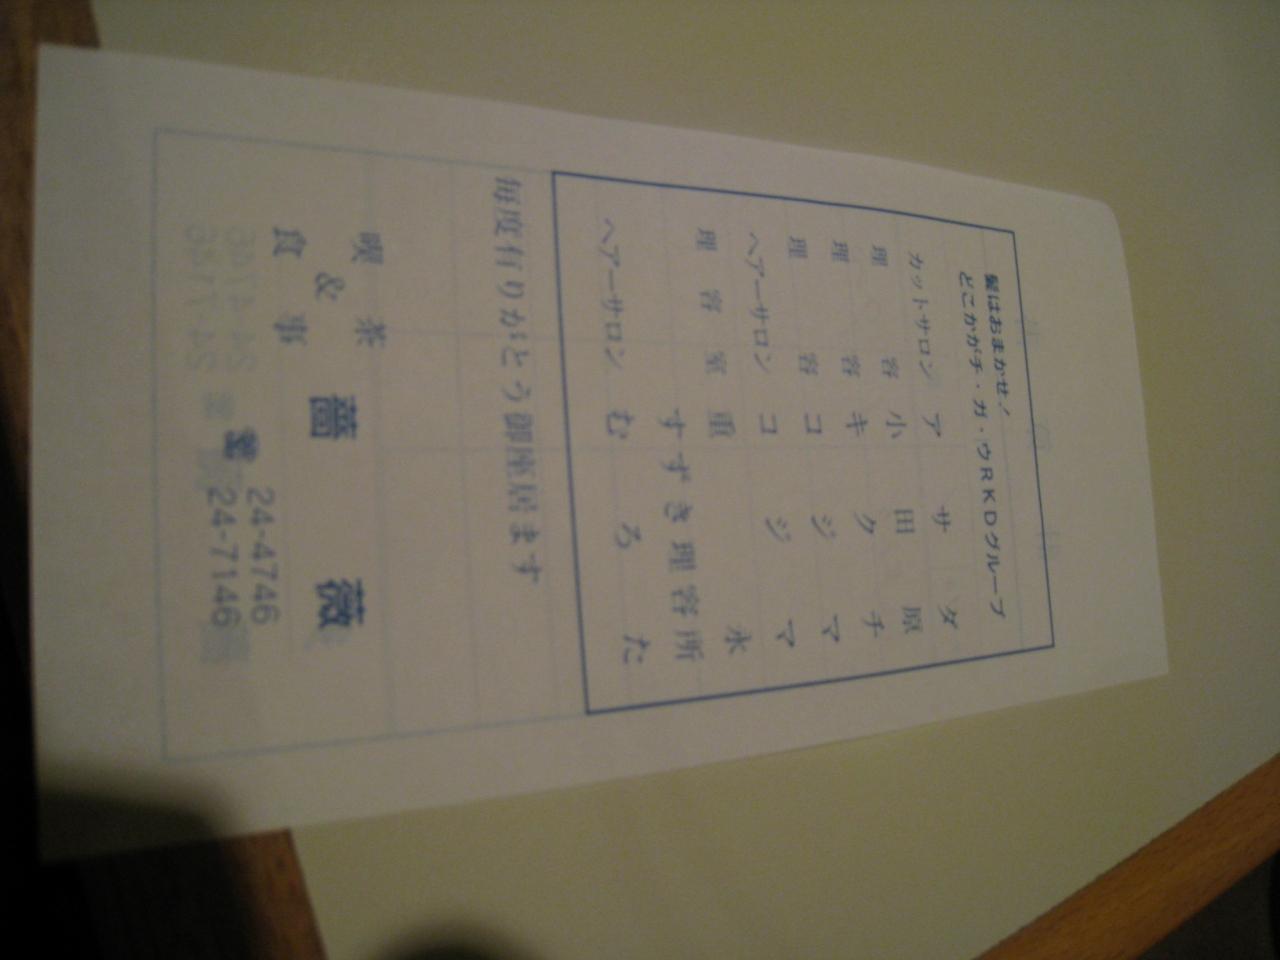 髪はおまかせ！
どこかがチ・ガ・ウRKDグループ
カットサロン アサダ
理容 小田原
理容 キクチ
理容 コジマ
ヘアーサロン コジマ
理容室 重永
すずき理容所
ヘアーサロン むろた
毎度有りがとう御座居ます
喫茶
&
食事
薔薇
24-4746
24-7146